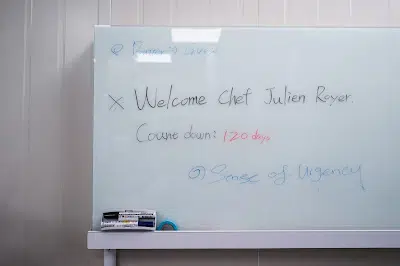 × Welcome Chef Julien Royer.
Count down: 120 days
Sense of Urgency